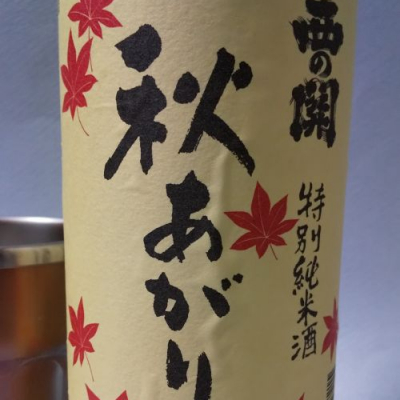 西の關
特別純米酒
秋あがり